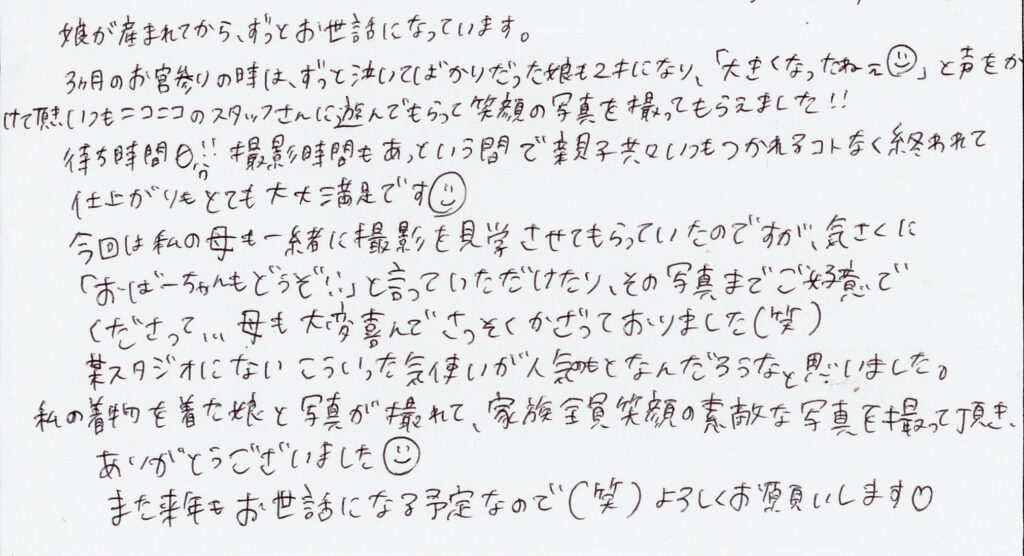 娘が産まれてから、ずっとお世話になっています。
3ヶ月のお宮参りの時は、ずっと泣いてばかりだった娘も2才になり、「大きくなったねぇ☺」と声をか
けて頂き、いつもニコニコのスタッフさんに遊んでもらって笑顔の写真を撮ってもらえました!!
待ち時間0分!! 撮影時間もあっという間で親子共々いつもつかれるコトなく終われて
仕上がりもとても大大満足です☺
今回は私の母も一緒に撮影を見学させてもらっていたのですが、気さくに
「おばーちゃんもどうぞ!!」と言っていただけたり、その写真までご好意で
くださって... 母も大変喜んでさっそくかざっておりました(笑)
某スタジオにないこういった気使いが人気のもとなんだろうなと思いました。
私の着物を着た娘と写真が撮れて、家族全員笑顔の素敵な写真を撮って頂き、
ありがとうございました☺
また来年もお世話になる予定なので(笑)よろしくお願いします♡